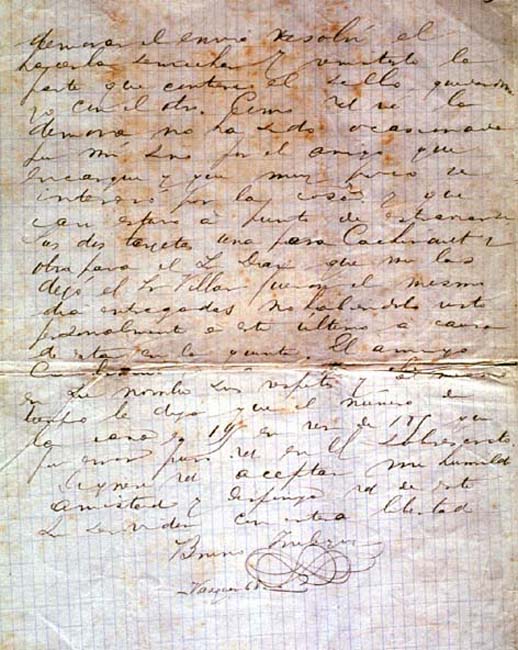 demorar el envio resolvi el
hacerla y remitirle la
parte que contiene el sello, quedandome
yo con el otro. Como vd ve la
demora no ha sido ocasionada
por mi sino por el amigo que
encargue y que muy poco se
intereso por la cosa y que
casi estuvo a punto de
Las dos tarjetas una para y
otra para el Sr Diaz que me las
dejó el Sr Villar fueron el mismo
dia entregadas no habiendolo visto
personalmente a este ultimo a causa
de estar en la quinta. El amigo
en su nombre sus respetos y al mismo
tiempo le dijo que el número de
la casa es 19 en vez de 175 que
por error puso vd en el sobrescrito.
vd aceptar mi humilde
amistad y disponga vd de este
su servidor con entera libertad
Bruno